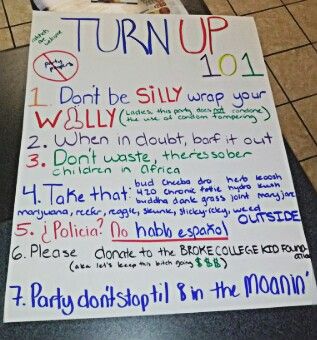 TURN UP
101
party poopers
1. Don't be SILLY wrap your
WILLY (Ladies, this party does not condone
the use of condom tampering)
2. When in doubt, barf it out
3. Don't waste, theres sober
children in Africa
4. Take that: bud cheeba dro herb koosh
420 chronic hydro kush
buddha dank grass joint maryjane
marijuana, reefer, reggie, skunk, stickyicky, weed
OUTSIDE
5. ¿Policia? No hablo español
6. Please donate to the BROKE COLLEGE KID
(aka let's keep this bitch going $$$)
7. Party don't stop til 8 in the MOANIN'